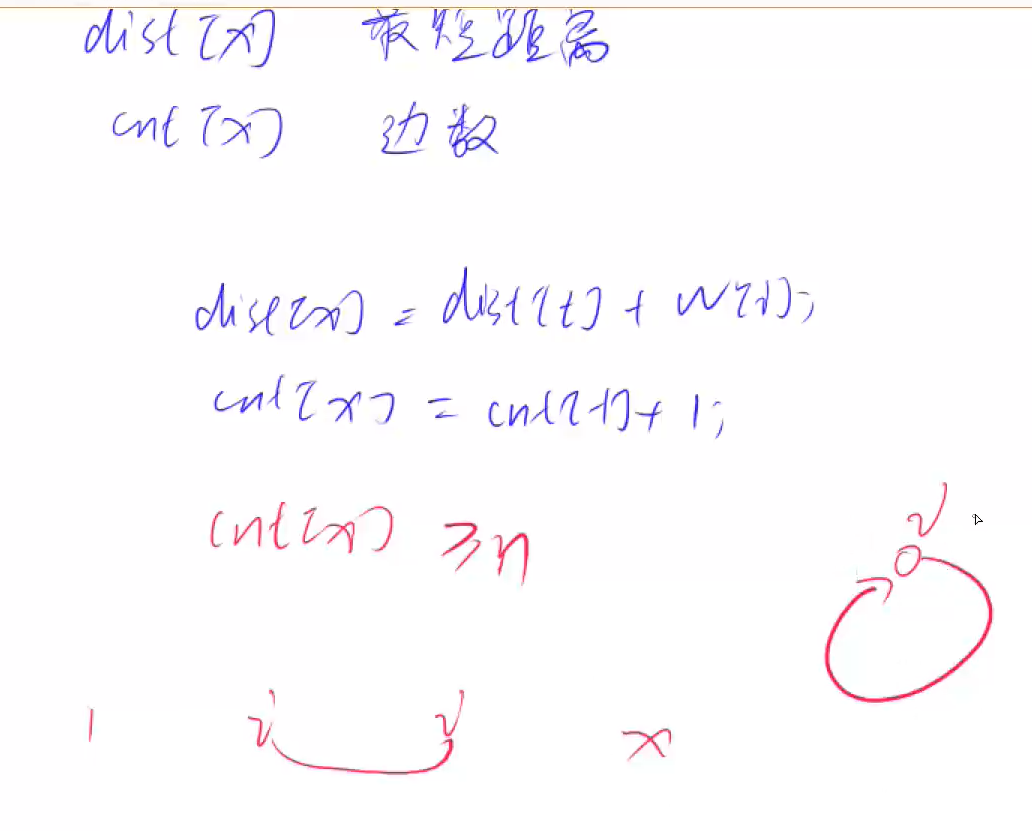 dist[x] 最短距离
cnt[x] 边数
dist[x] = dist[t] + w[i];
cnt[x] = cnt[t] + 1;
cnt[x] ≥ n
i
1 i i x